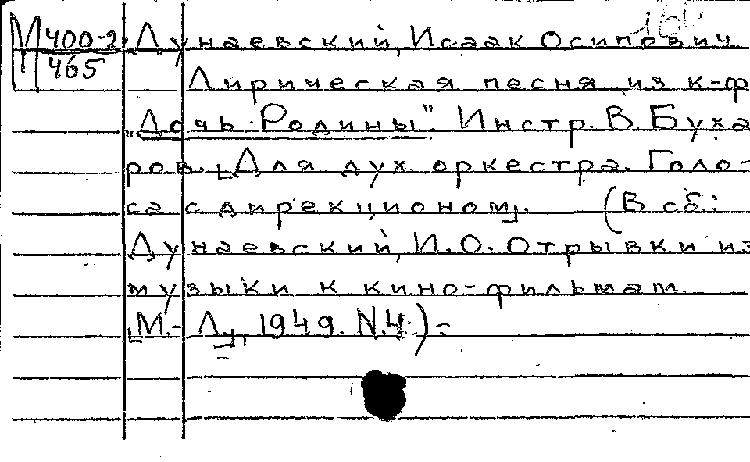 М 400-2 Дунаевский, Исаак Осипович
465 Лирическая песня из к-ф
„Дочь Родины". Инстр. В. Буха
ров. [Для дух. оркестра. Голо-
са с дирекционом]. (В сб.:
Дунаевский, И.О. Отрывки из
музыки к кино-фильмам.
[М.-Л.], 1949. N.4)-